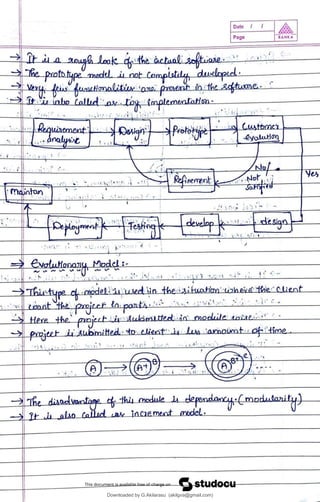 Date / /
Page
→ It is a rough look of the actual software.
→ The prototype model is not completely developed.
→ Very few functionalities are present in the software.
→ It is also called as toy implementation.
Requirement analysis
Design
Prototype
Customer evolution
No/ Not Satisfied
Yes
Refinement
maintan
Deployment
Testing
develop
design
⇒ Evolutionary Model :-
→ This type of model is used in the situation where the client
want the project in parts.
→ Here the project is submitted in module wise.
→ project is submitted to client is less amount of time.
A → A+B → B+C
→ The disadvantage of this module is dependancy. (modularity)
→ It is also called as increment model.
This document is available free of charge on
studocu
Downloaded by G.Akilarasu (akilgra@gmail.com)